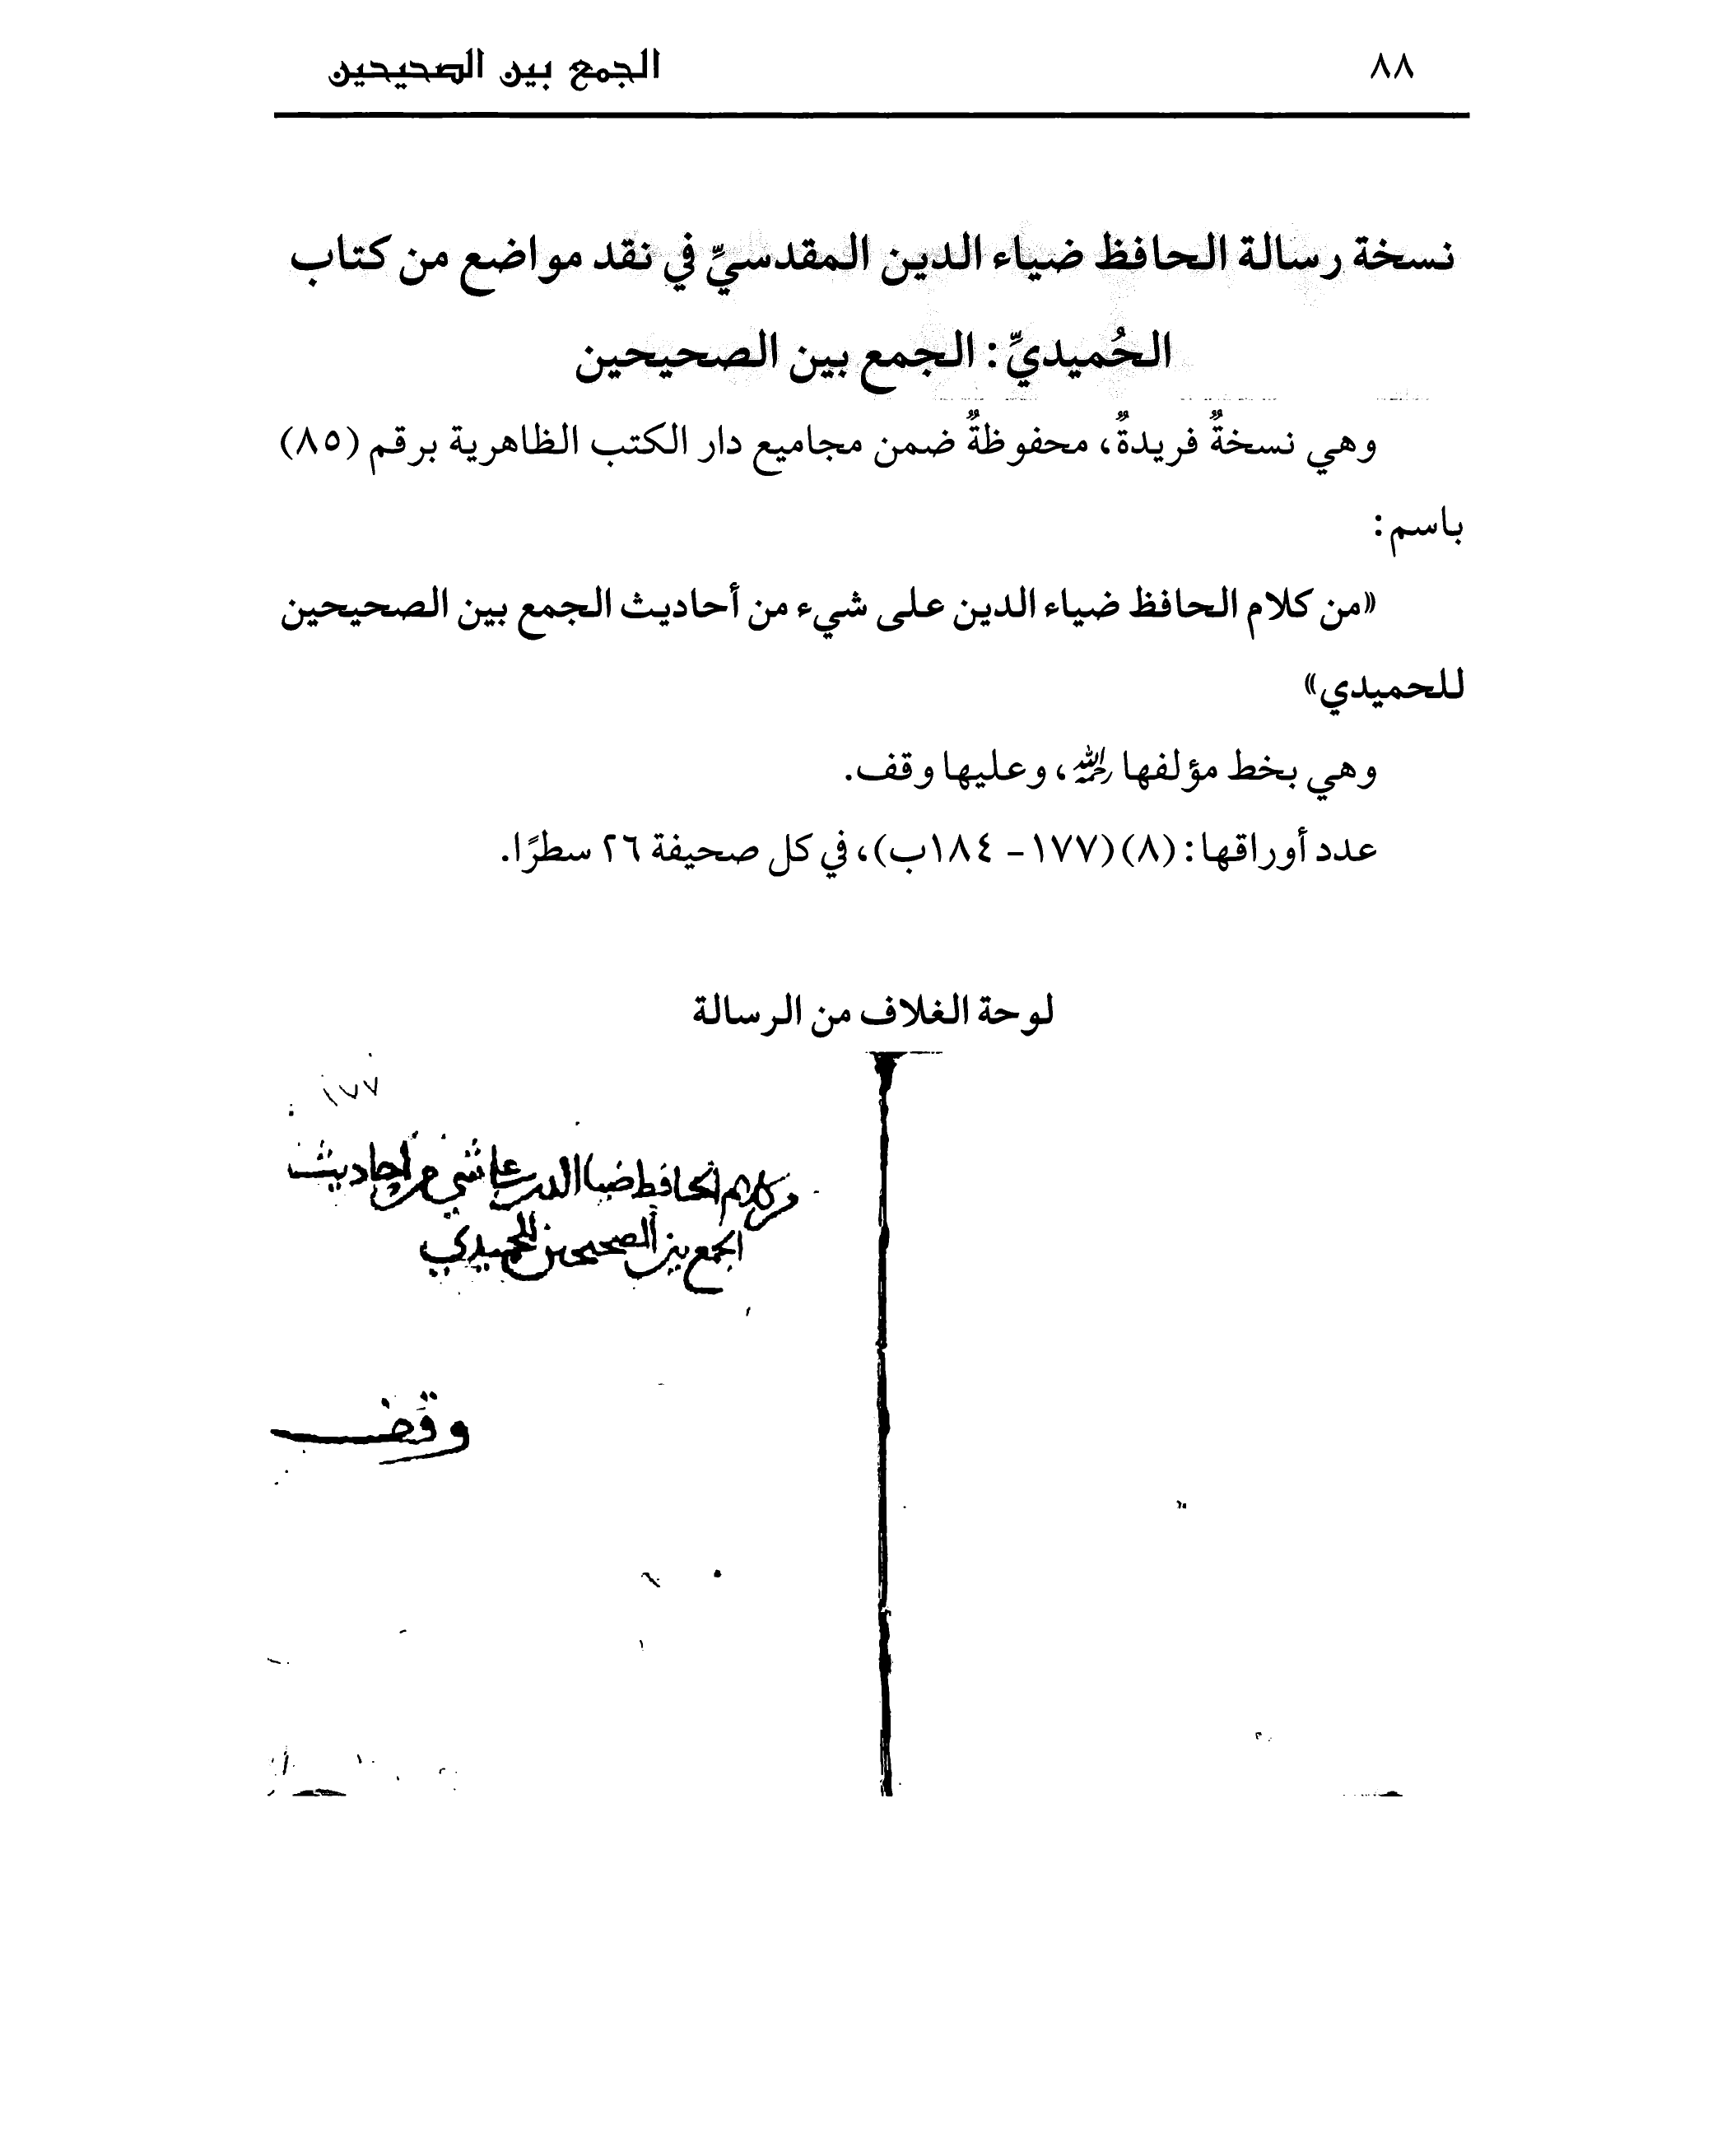 ٨٨
الجمع بين الصحيحين
نسخة رسالة الحافظ ضياء الدين المقدسيِّ في نقد مواضع من كتاب
الحُميديِّ: الجمع بين الصحيحين
وهي نسخةٌ فريدةٌ، محفوظةٌ ضمن مجاميع دار الكتب الظاهرية برقم (٨٥)
باسم:
«من كلام الحافظ ضياء الدين على شيء من أحاديث الجمع بين الصحيحين
للحميدي»
وهي بخط مؤلفها رحمه الله، وعليها وقف.
عدد أوراقها: (٨) (١٧٧- ١٨٤ب)، في كل صحيفة ٢٦ سطرًا.
لوحة الغلاف من الرسالة
١٧٧
من كلام الحافظ ضيا الدين على شي من احاديث
الجمع بين الصحيحين للحميدي
وقف